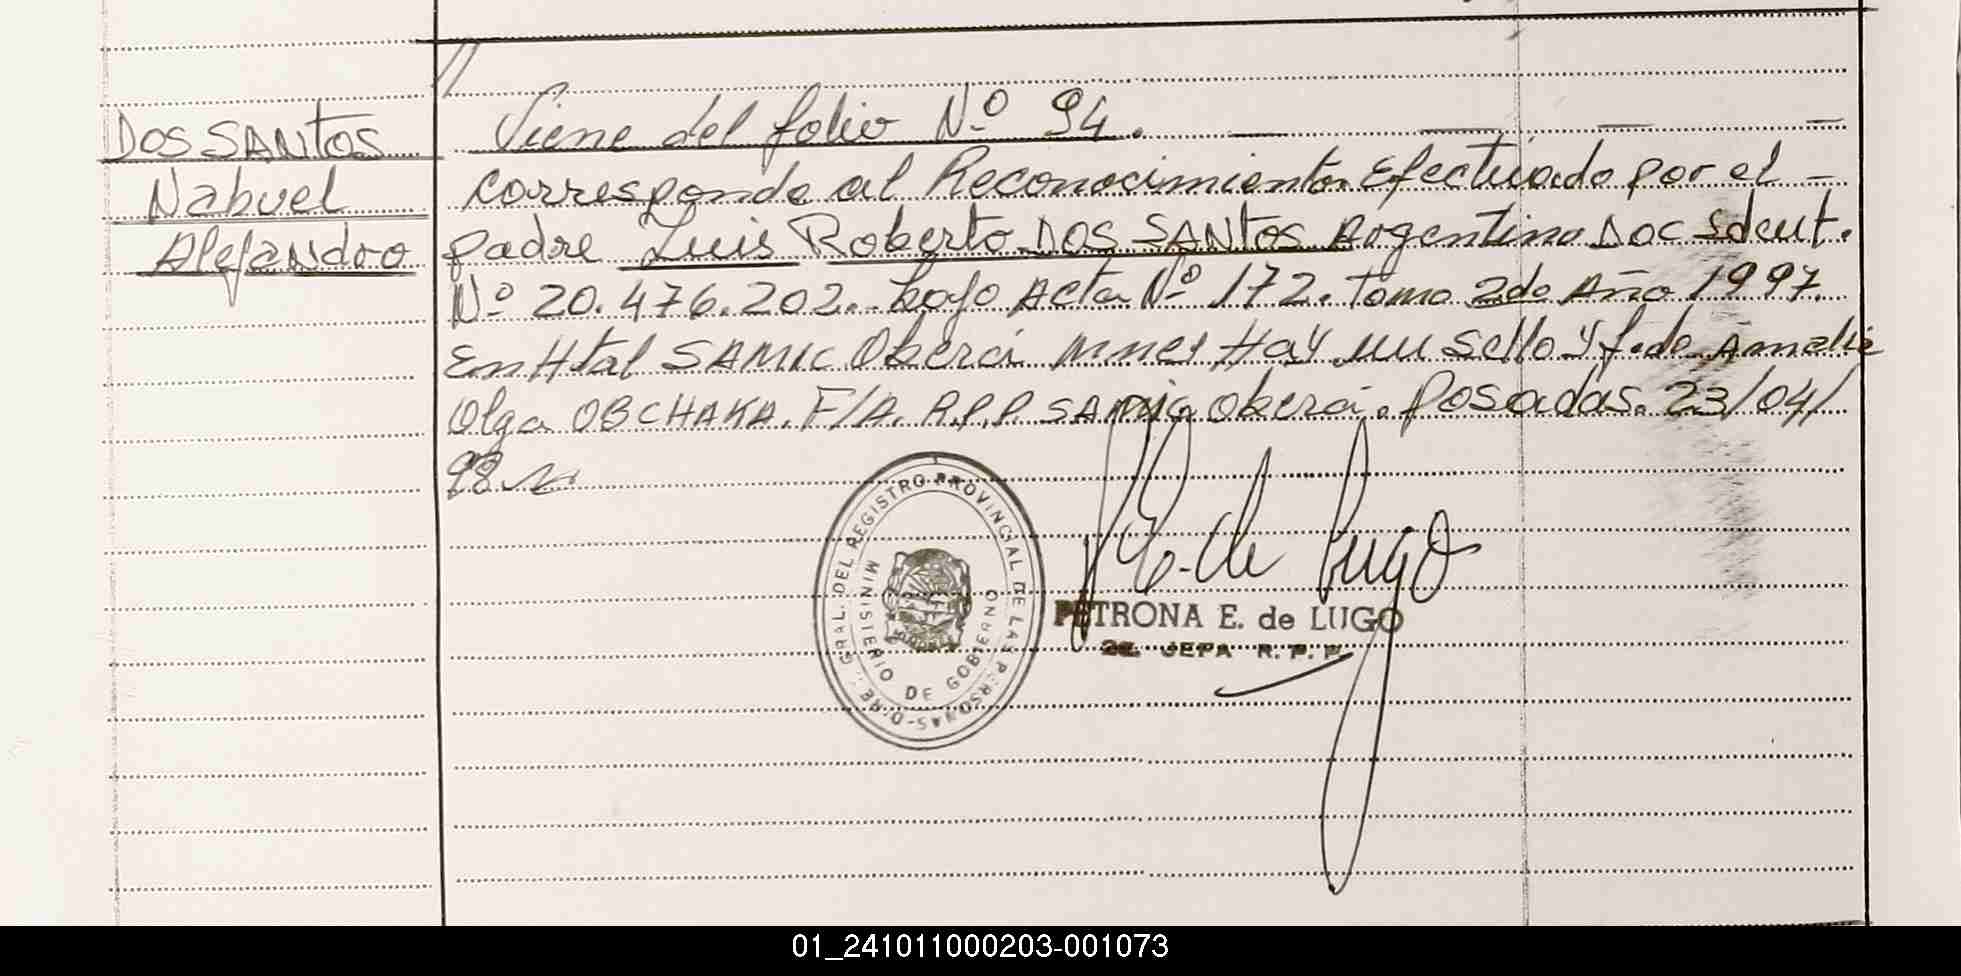 //
Viene del folio Nº 94. — — — =
DOS SANTOS
Nahuel
Alejandro
corresponde al Reconocimiento Efectuado por el -
padre Luis Roberto DOS SANTOS Argentino Doc Ident.
Nº 20.476.202.- bajo Acta Nº 172. Tomo 2do Año 1997.
En Htal SAMIC Oberá Mnes Hay un sello y f. de Amelia
Olga OBCHAKA. F/A. R.P.P. SAMIC Oberá. Posadas. 23/04/
98
GRAL. DEL REGISTRO PROVINCIAL DE LAS PERSONAS-DIRE.
MINISTERIO DE GOBIERNO
E. de Lugo
PETRONA E. de LUGO
2E. JEFA R. P. P.
01_241011000203-001073